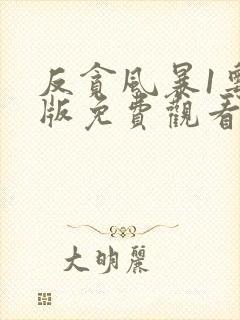 反貪風暴1粵
版免費觀看
大明麗